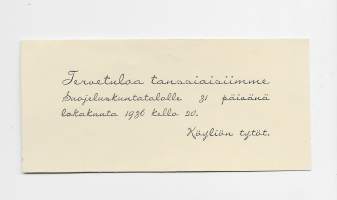 Tervetuloa tanssiaisiimme
Suojeluskuntatalolle 31 päivänä
lokakuuta 1936 kello 20.
Köyliön tytöt.